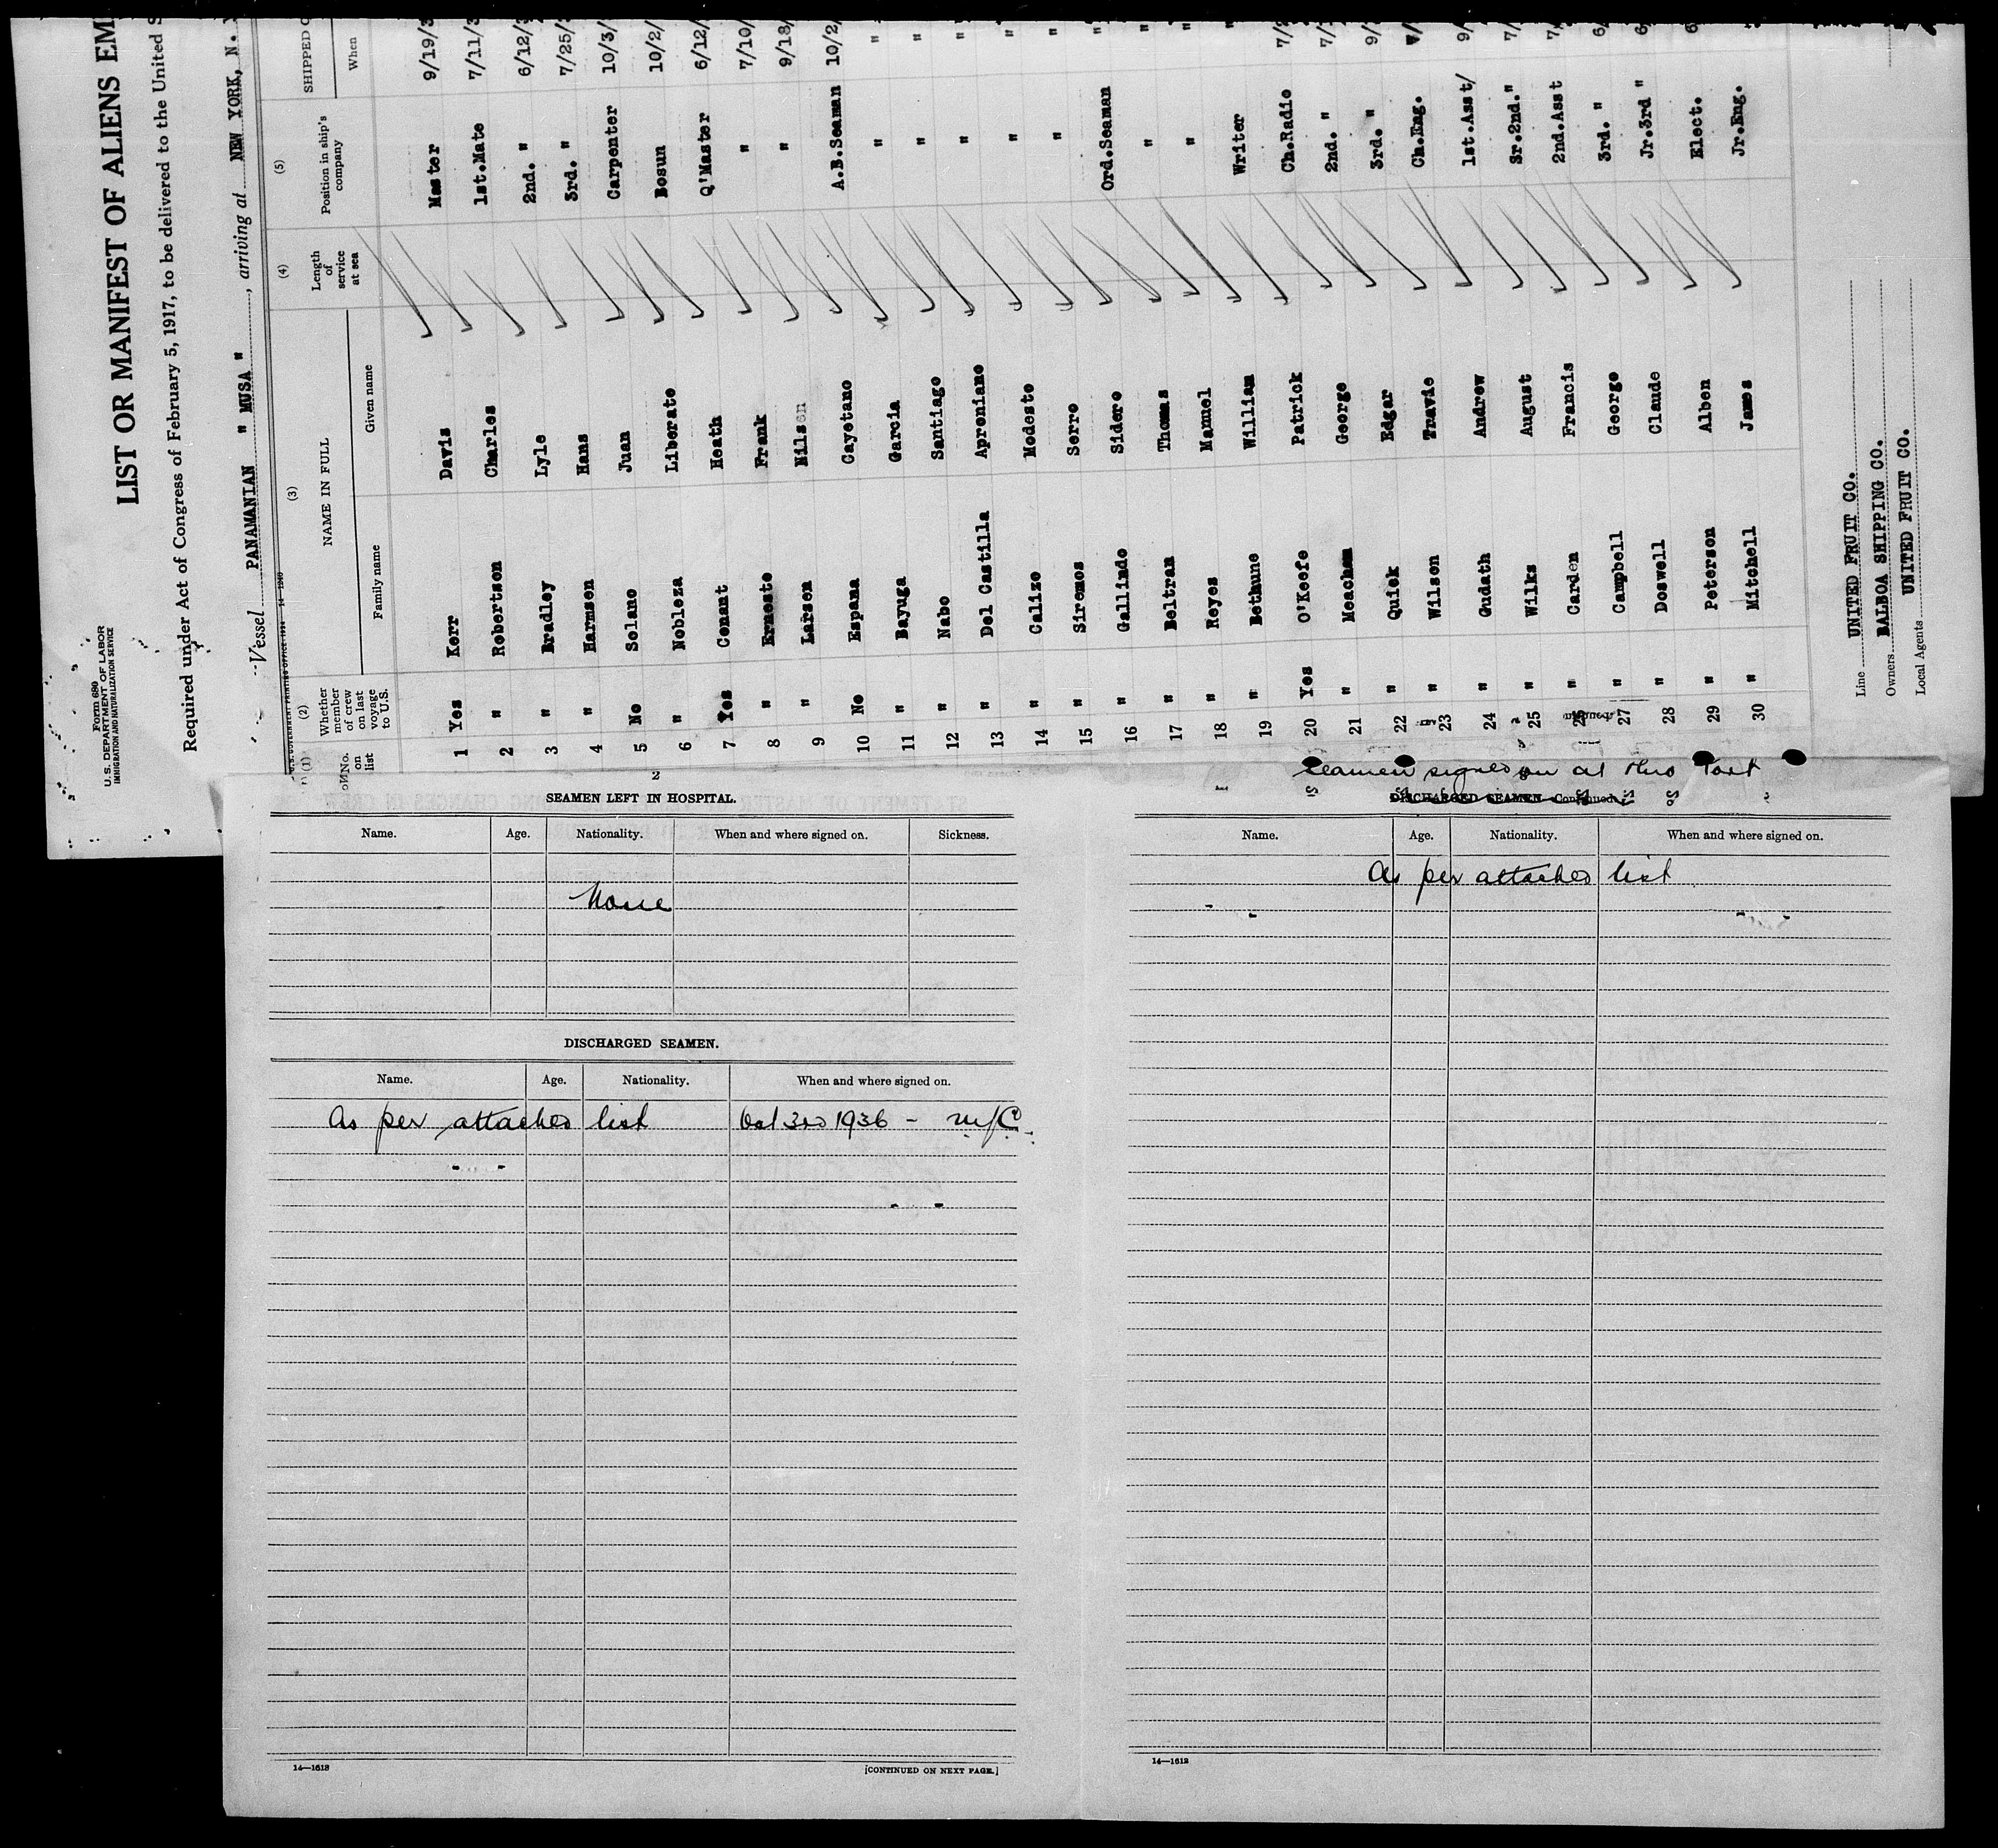 Form 680
U.S. DEPARTMENT OF LABOR
IMMIGRATION AND NATURALIZATION SERVICE
LIST OR MANIFEST OF ALIENS EM
Required under Act of Congress of February 5, 1917, to be delivered to the United S
Vessel PANAMANIAN " MUSA " , arriving at NEW YORK, N.
(1) (2) (3) (4) (5)
No. on list Whether member of crew on last voyage to U.S. NAME IN FULL Length of service at sea Position in ship's company SHIPPED
Family name Given name When
1 Yes Kerr Davis Master 9/19/3
2 " Robertson Charles 1st.Mate 7/11/3
3 " Bradley Lyle 2nd. " 6/12/
4 " Harmsen Hans 3rd. " 7/25/
5 No Solano Juan Carpenter 10/3/
6 " Nobleza Liberato Bosun 10/2/
7 Yes Conant Heath Q'Master 6/12/
8 " Ernesto Frank " 7/10/
9 " Larsen Nilsen " 9/18/
10 No Espana Cayetano A.B.Seaman 10/2/
11 " Bayuga Garcia " "
12 " Nabo Santiago " "
13 " Del Castilla Aproniano " "
14 " Calizo Modesto " "
15 " Siromos Serro " "
16 " Gallindo Sidero Ord.Seaman "
17 " Beltran Thomas " "
18 " Reyes Manuel " "
19 " Bethune William Writer "
20 Yes O'Keefe Patrick Ch.Radio 7/2
21 " Meacham George 2nd. " 7/
22 " Quick Edgar 3rd. " 9/
23 " Wilson Travie Ch.Eng. 7/
24 " Gudath Andrew 1st.Asst/ 9/
25 " Wilks August Sr.2nd." 7/
26 " Carden Francis 2nd.Asst 7/
27 " Campbell George 3rd. " 6/
28 " Doswell Claude Jr.3rd " 6/
29 " Peterson Alben Elect. 6
30 " Mitchell James Jr.Eng. "
Line UNITED FRUIT CO.
Owners BALBOA SHIPPING CO.
Local Agents UNITED FRUIT CO.
2
SEAMEN LEFT IN HOSPITAL.
Name. Age. Nationality. When and where signed on. Sickness.
None
DISCHARGED SEAMEN.
Name. Age. Nationality. When and where signed on.
As per attached list Oct 3rd 1936 -
14—1613
[CONTINUED ON NEXT PAGE.]
Seamen signed on at this Port
DISCHARGED SEAMEN—Continued.
Name. Age. Nationality. When and where signed on.
As per attached list
14—1613